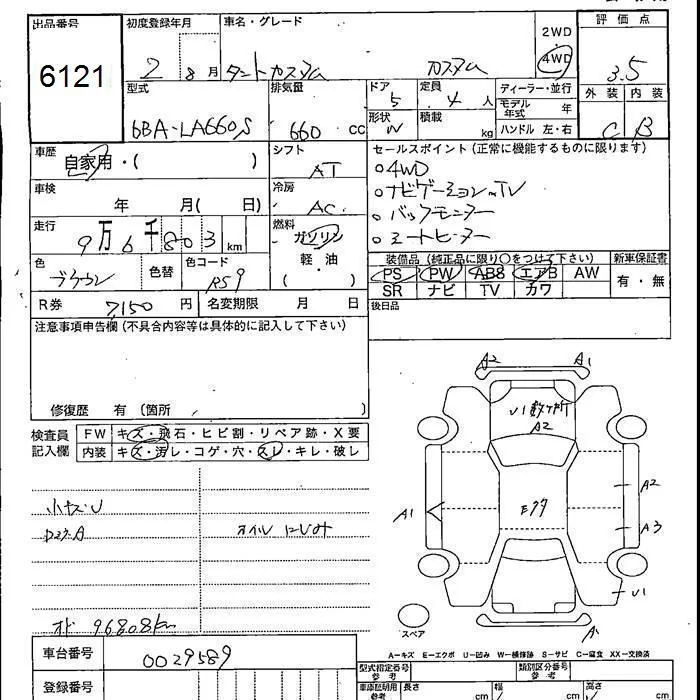 出品番号 初度登録年月 車名・グレード 2WD 評価点
6121 2 8月 タントカスタム カスタム 4WD 3.5
型式 排気量 ドア 5 定員 4人 ディーラー・並行 外装 内装
6BA-LA660S 660 cc 形状 W 積載 kg モデル年式 年 C B
ハンドル 左・右
車歴 自家用・( ) シフト AT セールスポイント (正常に機能するものに限ります)
車検 年 月( 日) 冷房 AC
○4WD
○ナビゲーション TV
○バックモニター
○シートヒーター
走行 9万6千803 km 燃料 ガソリン 軽・油 ( )
色 ブラウン 色替 色コード R59
装備品 (純正品に限り○をつけて下さい) 新車保証書
PS PW ABS エアB AW 有・無
SR ナビ TV カワ
R券 7,150 円 名変期限 月 日 後日品
注意事項申告欄 (不具合内容等は具体的に記入して下さい)
修復歴 有 (箇所 )
検査員記入欄 FW キズ・飛石・ヒビ割・リペア跡・X要
内装 キズ・汚レ・コゲ・穴・スレ・キレ・破レ
A2 A1
U1数ヶ所
A2
A1 A2
A3
U1
小キズU
オイルにじみ
オド 96808km
スペア A
A=キズ E=エクボ U=凹み W=補修跡 S=サビ C=腐食 XX=交換済
車台番号 0029589
型式指定番号 参考 類別区分番号 参考
登録番号 車庫証明用 参考 長さ cm 幅 cm 高さ cm